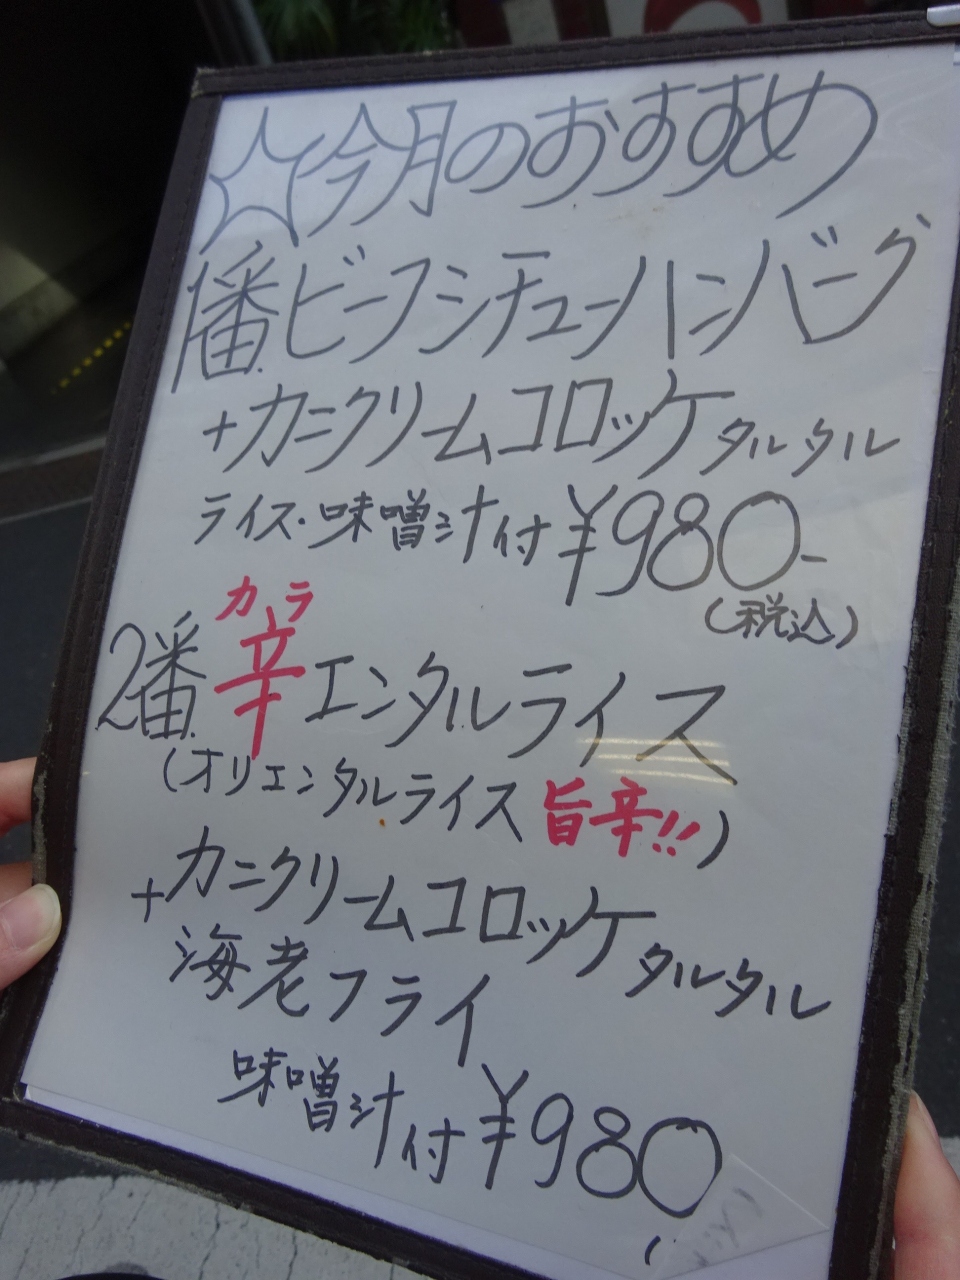 ☆今月のおすすめ
1番ビーフシチューハンバーグ
+カニクリームコロッケタルタル
ライス・味噌汁付¥980-
(税込)
カラ
2番辛エンタルライス
(オリエンタルライス旨辛!!)
+カニクリームコロッケタルタル
海老フライ
味噌汁付¥980